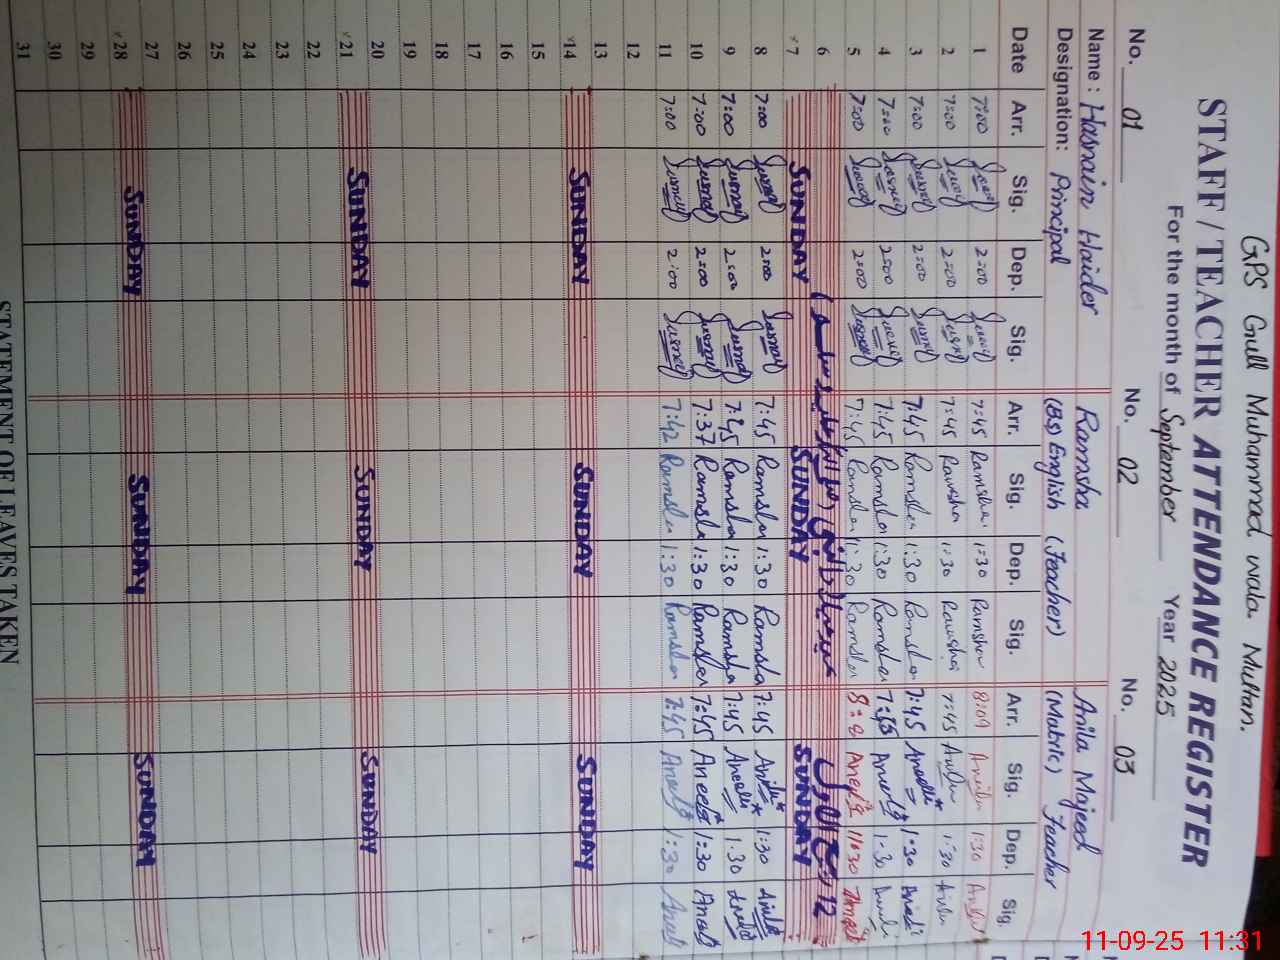 GPS Gull Muhammad wala Multan.
STAFF / TEACHER ATTENDANCE REGISTER
For the month of September Year 2025
No. 01 No. 02 No. 03
Name : Hasnain Haider Ramsha Anila Majeed
Designation: Principal (BS) English (Teacher) (Matric) Teacher
Date Arr. Sig. Dep. Sig. Arr. Sig. Dep. Sig. Arr. Sig. Dep. Sig.
1 7:00 2:00 7:45 Ramsha 1:30 Ramsha 8:09 1:30
2 7:00 2:00 7:45 Ramsha 1:30 Ramsha 7:45 1:30
3 7:00 2:00 7:45 Ramsha 1:30 Ramsha 7:45 1:30
4 7:00 2:00 7:45 Ramsha 1:30 Ramsha 7:45 1:30
5 7:00 2:00 7:45 Ramsha 1:30 Ramsha 8:8 11:30
6 12
7 SUNDAY SUNDAY SUNDAY
8 7:00 2:00 7:45 Ramsha 1:30 Ramsha 7:45 1:30
9 7:00 2:00 7:45 Ramsha 1:30 Ramsha 7:45 1.30
10 7:00 2:00 7:37 Ramsha 1:30 Ramsha 7:45 1:30
11 7:00 2:00 7:42 Ramsha 1:30 Ramsha 7:45 1:30
12
13
14 SUNDAY SUNDAY SUNDAY
15
16
17
18
19
20
21 SUNDAY SUNDAY SUNDAY
22
23
24
25
26
27
28 SUNDAY SUNDAY SUNDAY
29
30
31
STATEMENT OF LEAVES TAKEN
11-09-25 11:31